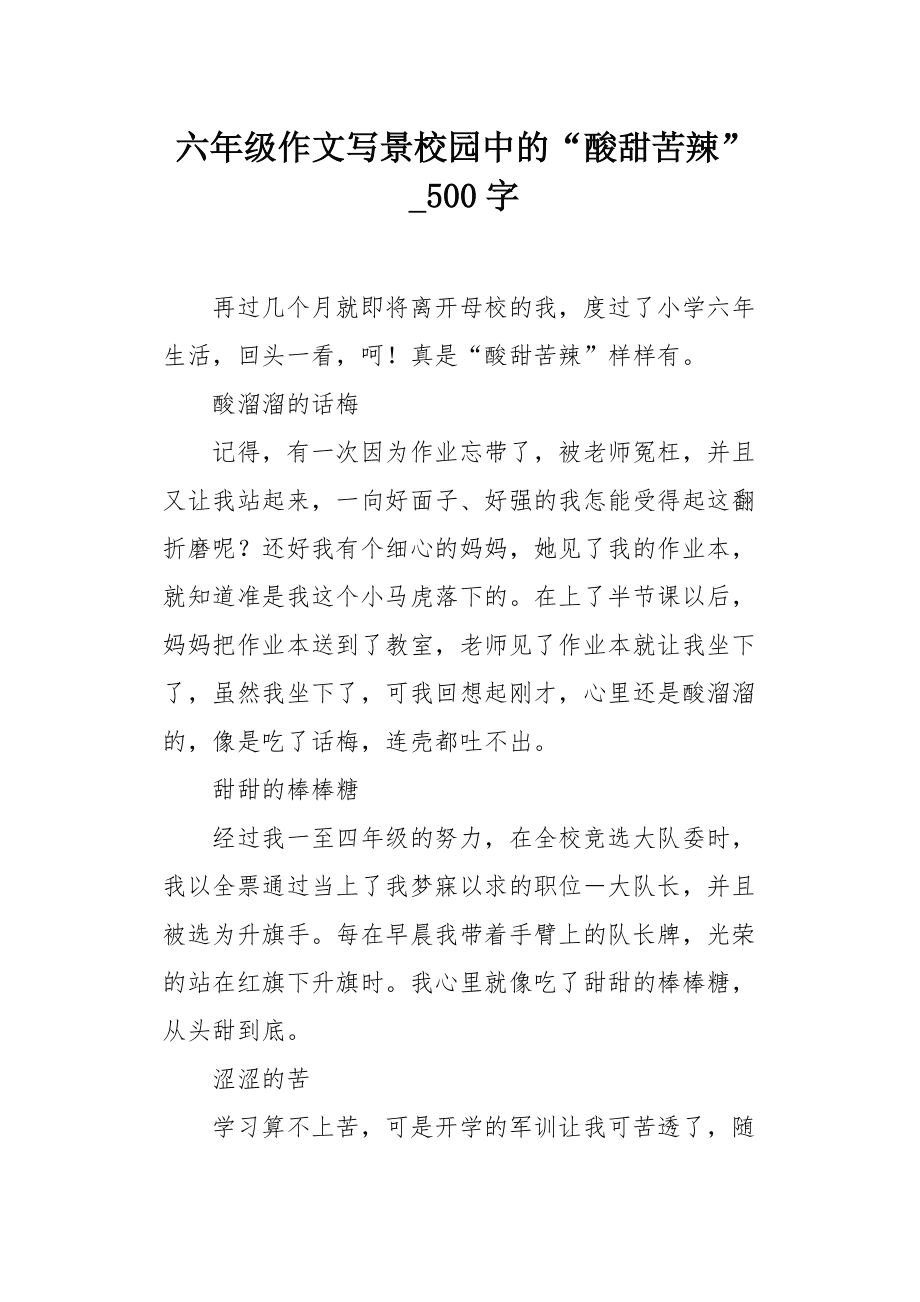 六年级作文写景校园中的“酸甜苦辣”
_500 字
再过几个月就即将离开母校的我，度过了小学六年
生活，回头一看，呵！真是“酸甜苦辣”样样有。
酸溜溜的话梅
记得，有一次因为作业忘带了，被老师冤枉，并且
又让我站起来，一向好面子、好强的我怎能受得起这翻
折磨呢？还好我有个细心的妈妈，她见了我的作业本，
就知道准是我这个小马虎落下的。在上了半节课以后，
妈妈把作业本送到了教室，老师见了作业本就让我坐下
了，虽然我坐下了，可我回想起刚才，心里还是酸溜溜
的，像是吃了话梅，连壳都吐不出。
甜甜的棒棒糖
经过我一至四年级的努力，在全校竞选大队委时，
我以全票通过当上了我梦寐以求的职位－大队长，并且
被选为升旗手。每在早晨我带着手臂上的队长牌，光荣
的站在红旗下升旗时。我心里就像吃了甜甜的棒棒糖，
从头甜到底。
涩涩的苦
学习算不上苦，可是开学的军训让我可苦透了，随